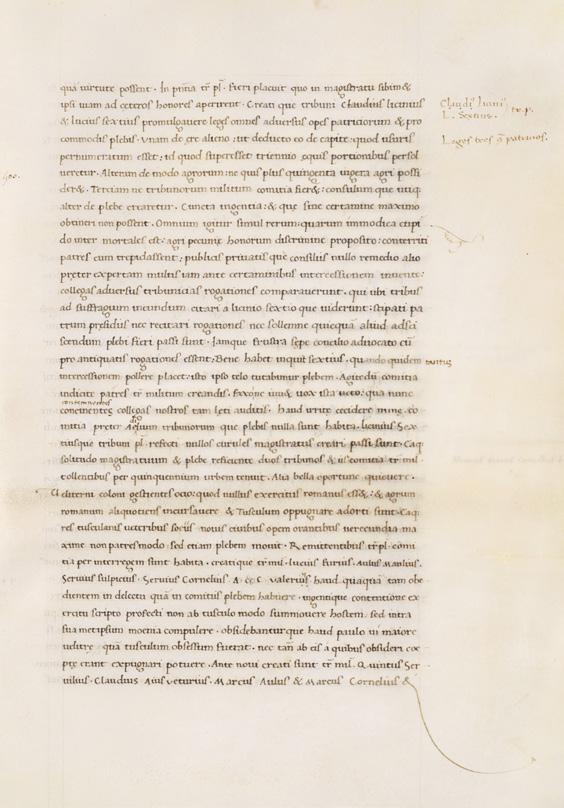 qua uirtute possent. In primis tr̄ pl. Fieri placuit quo in magistratu sibimet
ipsi uiam ad ceteros honores aperirent. Creati que tribuni Claudius licinius
& lucius sextius promulgauere leges omnes aduersus opes patriciorum & pro
commodis plebis. Vnam de ęre alieno: ut deducto eo de capite: quod usuris
pernumeratum esset: id quod superesset triennio ęquis portionibus persol
ueretur. Alterum de modo agrorum: ne quis plus quingenta iugera agri possi
der&. Terciam ne tribunorum militum comitia fier&: consulum que utiqꝫ
alter de plebe crearetur. Cuncta ingentia: & quę sine certamine maximo
obtineri non possent. Omnium igitur simul rerum: quarum immodica cupi
do inter mortales est: agri pecunię honorum discrimine proposito: conterriti
patres cum trepidassent: publicis priuatis que consiliis nullo remedio alio
pręter expertam multis iam ante certaminibus intercessionem inuento:
collegas aduersus tribunicias rogationes comparauerunt. qui ubi tribus
ad suffragium ineundum citari a licinio sextio que uiderunt: stipati pa
trum pręsidiis nec recitari rogationes nec sollemne quicquā aliud ad sci
scendum plebi fieri passi sunt. Iamque frustra sępe concilio aduocato cū
pro antiquatis rogationes essent: Bene habet inquit sextius. quando quidem tantum
intercessionem pollere placet: isto ipso telo tutabimur plebem. Agedū comitia
indicite patres tr̄ militum creandis. faxo ne iuu& uox ista ueto: qua nunc
concinentes collegas nostros tam leti auditis. haud irritę cecidere minę. co
mitia pręter ędilium tribunorum que plebis nulla sunt habita. licinius Sex
tiusque tribuni pl. refecti nullos curules magistratus creari passi sunt. Eaqꝫ
solitudo magistratuum & plebe reficiente duos tribunos & iis comitia tr̄ mil.
tollentibus per quinquennium urbem tenuit. Alia bella oportune quieuere.
Veliterni coloni gestientes ocio: quod nullus exercitus romanus ess&: & agrum
romanum aliquotiens incursauere & Tusculum oppugnare adorti sunt. Eaqꝫ
res tusculanis ueteribus sociis nouis ciuibus opem orantibus uerecundia ma
xime non patres modo sed etiam plebem mouit. Remittentibus tr̄ pl. comi
tia per interregem sunt habita. creatique tr̄ mil. lucius furius. Aulus Manlius.
Seruius sulpicius. Seruius Cornelius. A. & C. Valerius. haud quaquā tam obe
dientem in delectu quā in comitiis plebem habuere. ingentique contentione ex
ercitu scripto profecti non ab tusculo modo summouere hostem. sed intra
sua metipsum moenia compulere. obsidebanturque haud paulo ui maiore
uelitrę quā tusculum obsessum fuerat. nec tam̄ ab eis a quibus obsideri coe
ptę erant expugnari potuere. Ante noui creati sunt tr̄ mil. Quintus Ser
uilius. Claudius Aius ueturius. Marcus Aulus & Marcus Cornelius &
L. Sextius. tr. p.